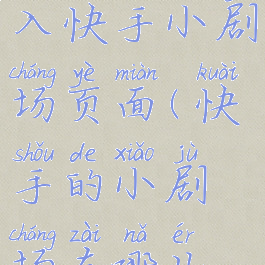 入快手小剧
cháng yè miàn kuài
场页面(快
shǒu de xiǎo jù
手的小剧
cháng zài nǎ ér